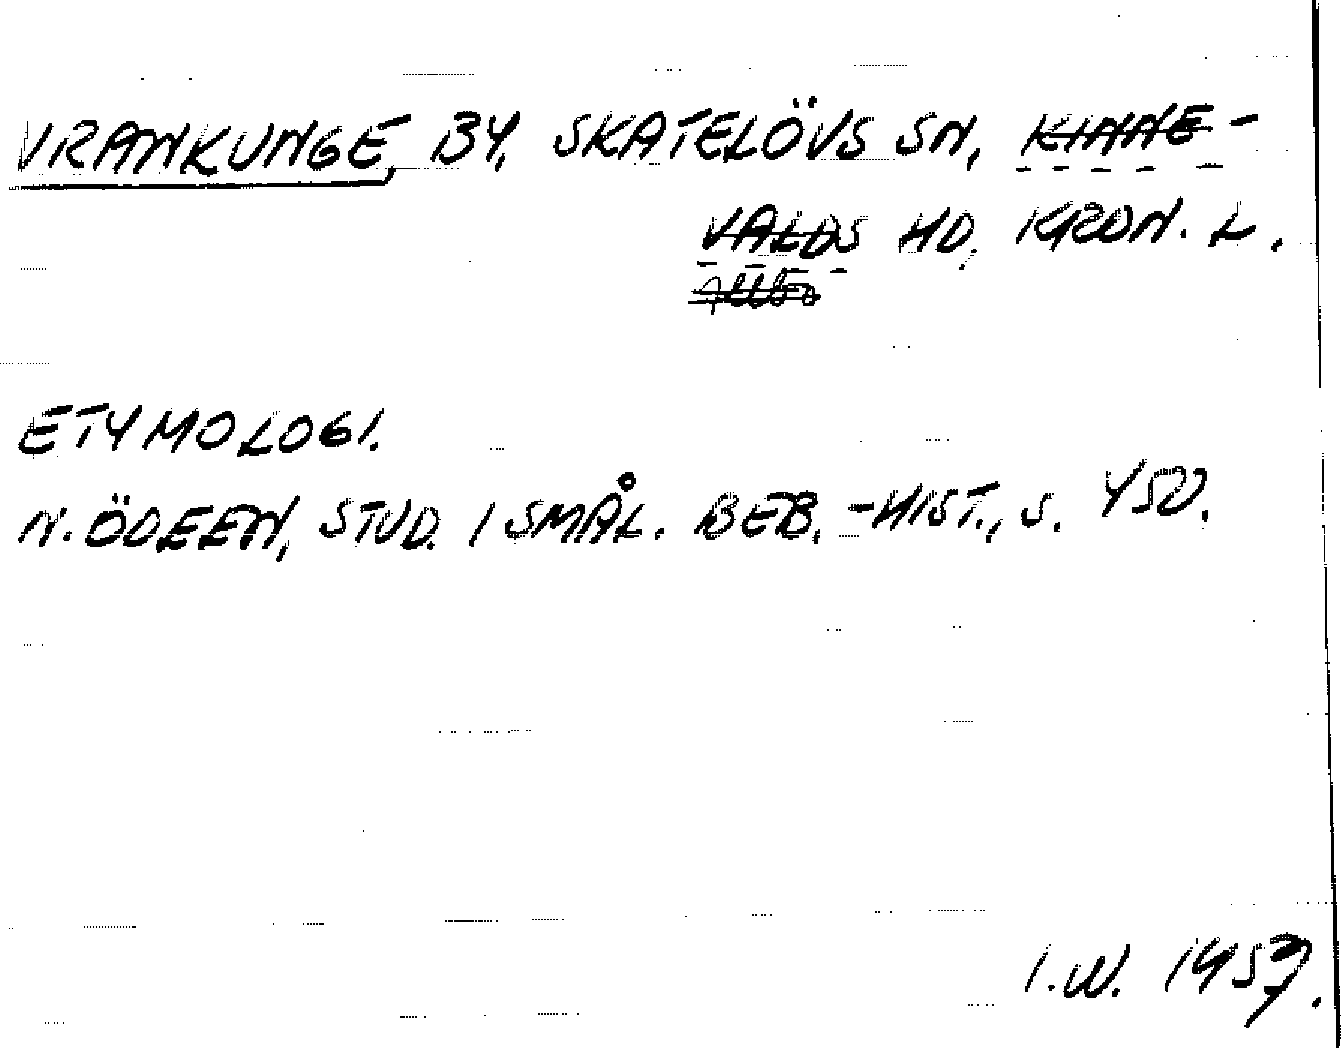 VRANKUNGE, BY, SKATELÖVS SN, KINNE-
VALDS HD, KRON. L.
ETYMOLOGI.
N. ÖDEEN, STUD. I SMÅL. BEB.-HIST., S. 450.
I.W. 1957.